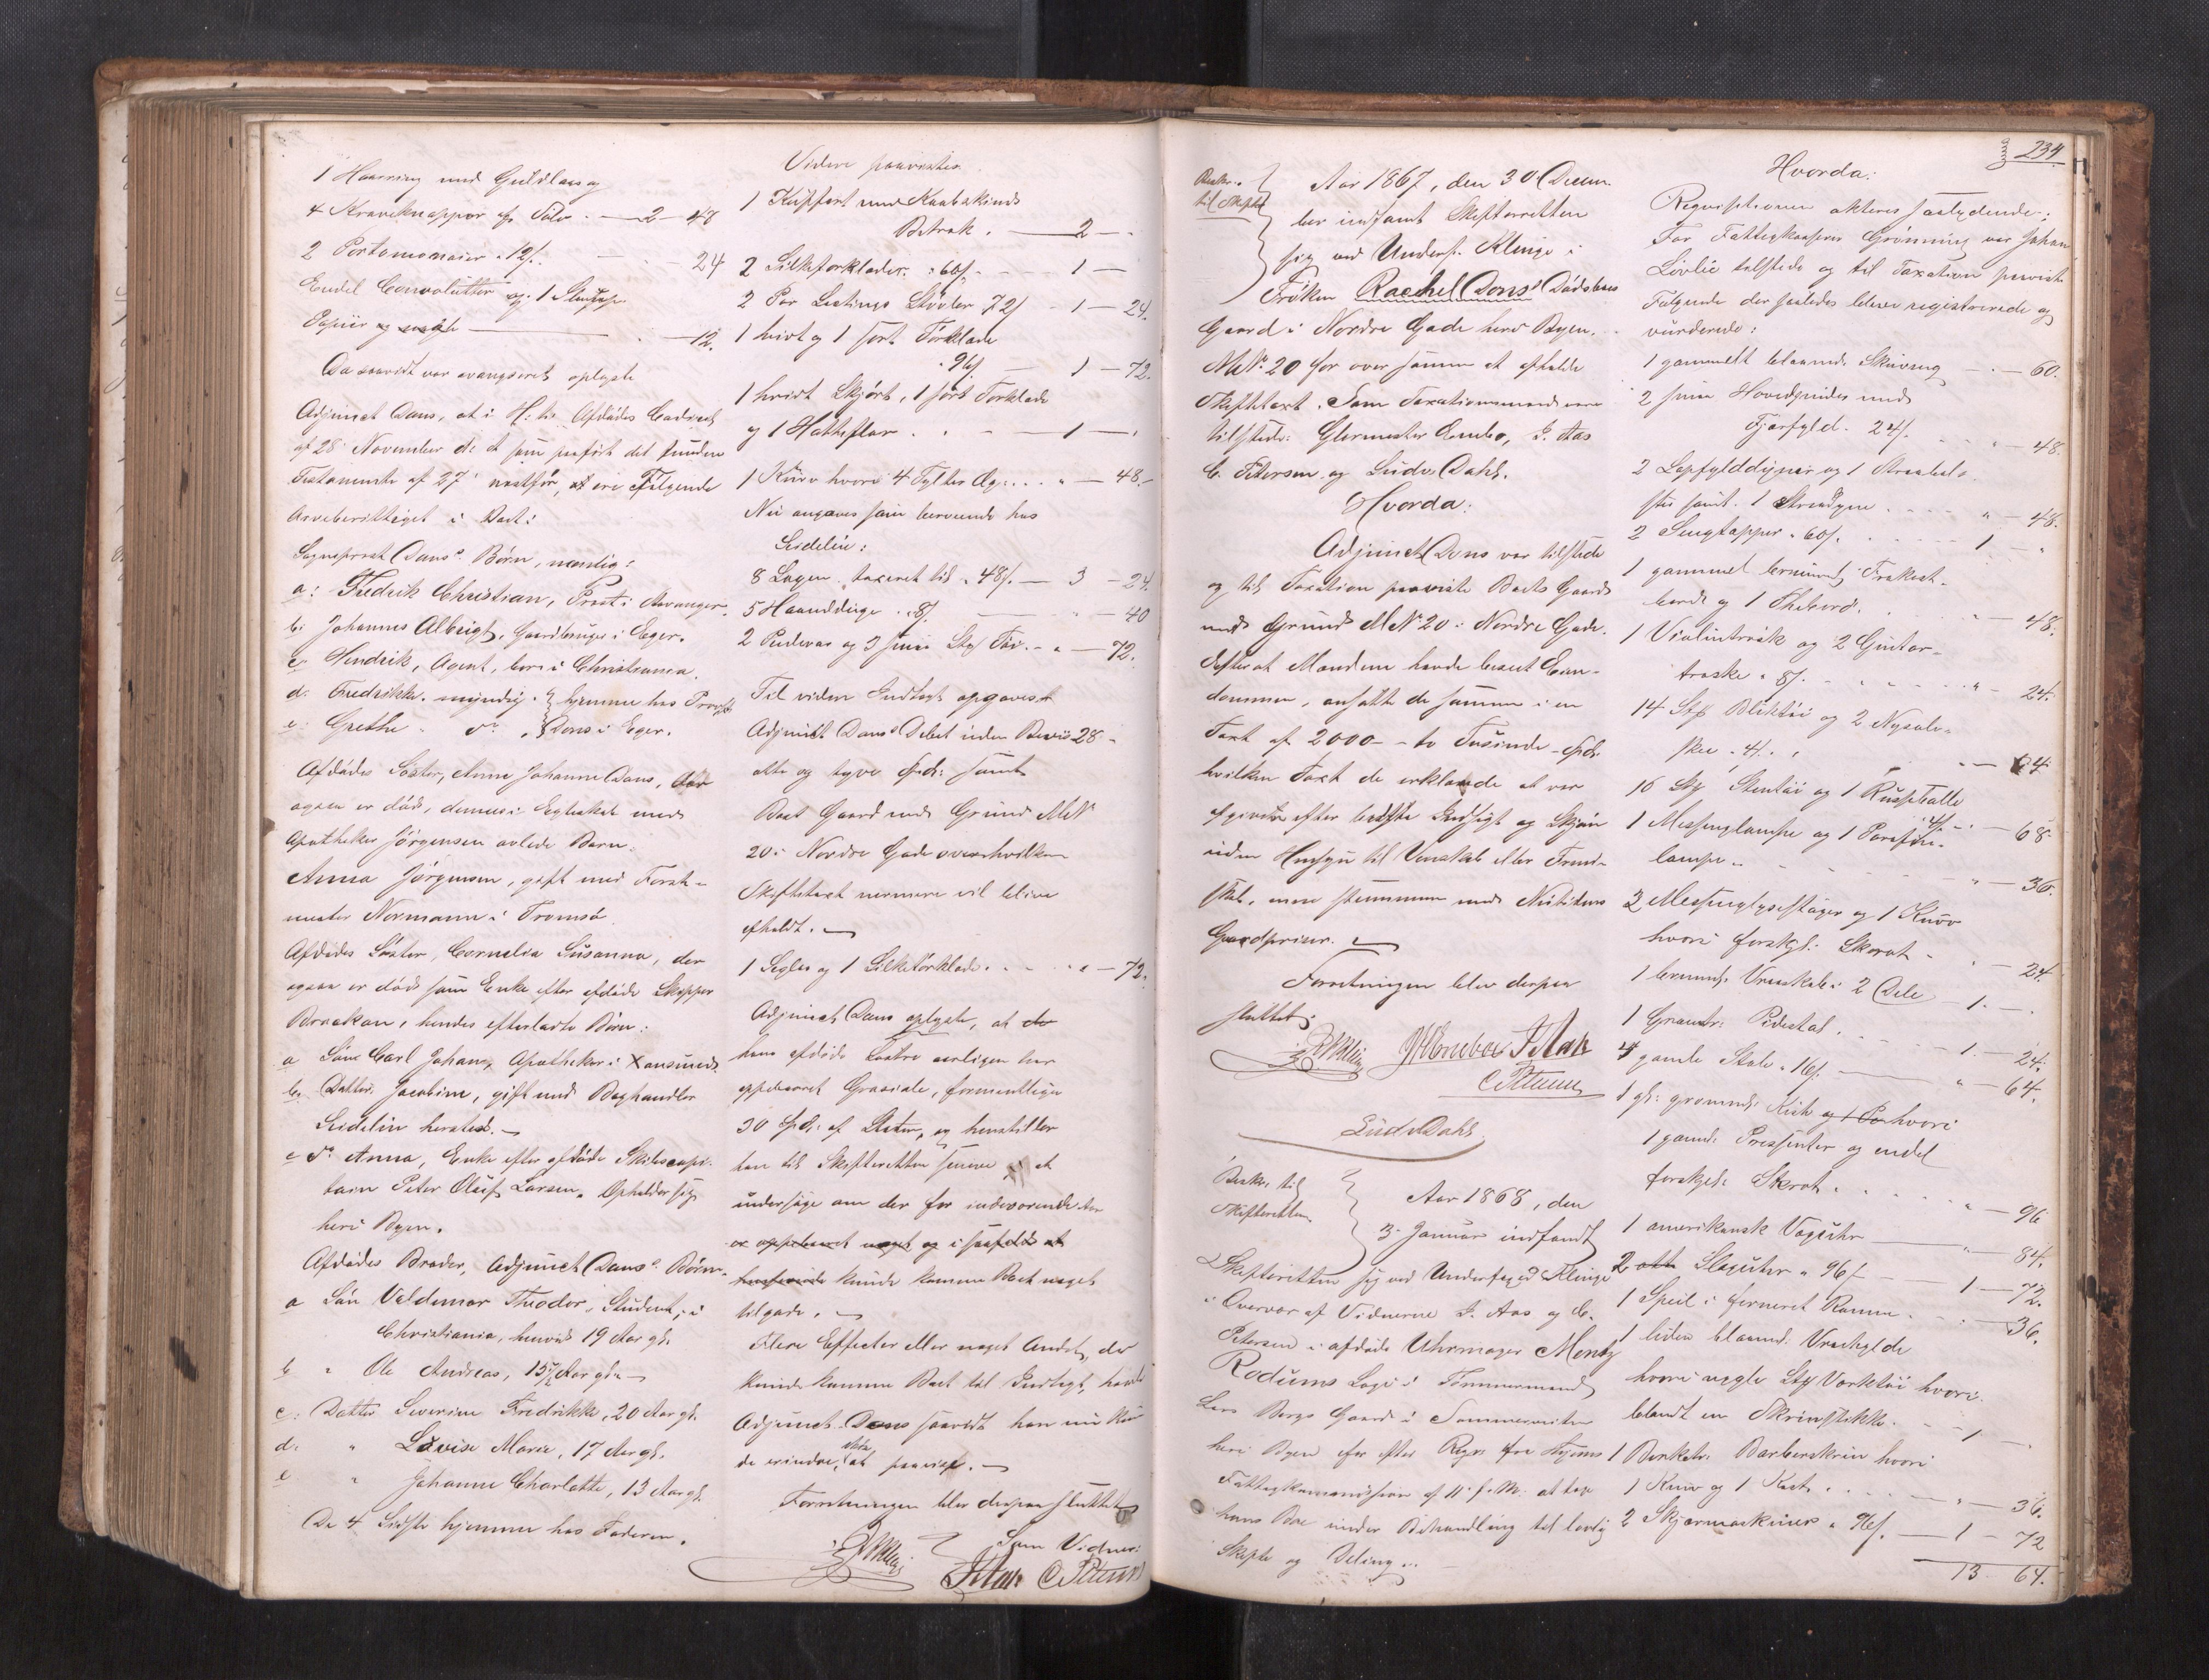 1 Haarring med Guldlaas og
4 Kraveknapper af Sølv - 2 - 48
2 Portemonaier 12/. - 24
Endel Convolutter og 1
Papiir og - 12.
Da saavidt var avanceret oplyste
Adjunct Dons, at i H. t. Afdødes Codicil
af 28 November d: A som paaført det fundne
Testamente af 27 næstfør, at ere Følgende
arveberettiget i Boet:
Sogneprest Dons's Børn, nemlig:
a: Fredrik Christian, Prest i Stavanger.
b: Johannes Albrigt, Gaardbruger i Eger.
c Hendrik, Agent, bor i Christiania.
d: Fredrikke myndig. } hjemme hos Provst
e: Grethe do } Dons i Eger.
Afdødes Søster, Anna Johanne Dons, der
ogsaa er død, dennes i Egteskab med
Apotheker Jørgensen avlede Barn:
Anna Jørgensen, gift med Forst-
mester Normann i Tromsø.
Afdødes Søster, Cornelia Susanna, der
ogsaa er død som Enke efter afdøde Skipper
hendes efterladte Børn:
a Søn Carl Johan, Apotheker i Xansund.
b, Datter Jacobine, gift med Boghandler
Seidelin hersteds. -
c do Anna, Enke efter afdøde Skibscapi-
tain Peter Oluf Larsen. Opholder sig
her i Byen.
Afdødes Broder, Adjunct Dons's Børn.
a Søn Valdemar Theodor, Student, i
Christiania, henved 19 Aar gl.
b " Ole Andreas, 15½ Aar gl. -
c: Datter Severine Fredrikke, 20 Aar gl.
d: " Lovise Marie, 17 Aar gl.
e " Johanne Charlotte, 13 Aar gl.
De 4 Sidste hjemme hos Faderen.
Videre paavistes
1 Kuffert med Kaabeskinds
Betræk. - 2 - .
2 Silkeforklæder. 60/. - 1 -
2 Par Lastings Støvler 72/ - 1 - 24.
1 hvidt og 1 sort Tørklæde
96/ - 1 - 72.
1 hvidt Skjørt, 1 sort Tørklæde
og 1 - 1 - .
1 Kurv hvori 4 Tylter Æg. - 48.-
Nu angaves som beroende hos
Seidelin:
8 Lagen taxeret til 48/. - 3 - 24.
5 Haandduge 8/. - 40
2 Pudevar og 3 smaa Stkr Tøi - 72.
Til videre Indtægt opgaves
Adjunct Dons's Debet uden Beviis 28 -
otte og tyve Spd: samt
Boets Gaard med Grund M No
20 i Nordre Gade over hvilken
Skiftetaxt nærmere vil blive
afholdt. -
1 og 1 Silketørklæde. - 72.
Adjunct Dons oplyste, at
hans afdøde Søstre aarligen har
oppebaaret Gratiale, formentligen
30 Spd: af Staten, og henstiller
han til Skifteretten senere at
undersøge om der for indeværende Aar
er oppebaaret noget og i saafald at
kunde komme Boet noget
tilgode. -
Flere Effecter eller noget Andet, der
kunde komme Boet til Indtægt, havde
Adjunct Dons saavidt han nu kun
de erindre, ikke at paavise. -
Forretningen blev derpaa sluttet
Som Vidner:
J Aas C Petersen
234
Beskr.
til Skifte
Aar 1867, den 30 Decem
ber indfandt Skifteretten
sig ved Underf. Klinge i
Frøken Rachel Dons's Dødsboes
Gaard i Nordre Gade her i Byen.
M No 20 for over samme at afholde
Skiftetaxt. Som Taxationsmænd vare
tilstede: Glarmester Embo, J. Aas
C. Petersen og Ludv. Dahl.
Hvorda:
Adjunct Dons var tilstede
og til Taxation paaviste Boets Gaard
med Grund M No 20 i Nordre Gade.
Efterat Mændene havde beseet Eien-
dommen, ansatte de samme i en
Taxt af 2000 - to Tusinde - Spd:
hvilken Taxt de erklærede at være
afgivet efter bedste Indsigt og Skjøn
uden Hensyn til Venskab eller Fiend-
skab, men stemmende med Nutidens
Gaardpriser. -
Forretningen blev derpaa
sluttet.
J Aas
C Petersen
Ludv Dahl.
Beskr. til
Skifteretten.
Aar 1868, den
3. Januar indfandt
Skifteretten sig ved Underfoged Klinge
i Overvær af Vidnerne J. Aas og C.
Petersen i afdøde Uhrmager Mentz
Rodums Logi i Tømmermand
Lars Bergs Gaard i
her i Byen for efter Reqv. fra Byens
Fattigkommission af 11 f. M. at tage
hans Boe under Behandling til lovlig
Skifte og Deling. -
Hvorda:
Requisitionen akteres saalydende:
For Fattigkassen Grønning var Johan
Løvlie tilstede og til Taxation paaviste
Følgende der saaledes bleve registrerede og
vurderede:
1 gammelt blaamalt Skrivetøg - 60.
2 smaa Hovedpuder med
Fjærfyld. 24/. - 48.
2 Lapfylddyner og 1
samt 1 Straadyne - " - 48.
2 Sengtepper 60/. - 1 - "
1 gammel brunmalt Frokost-
bord og 1 Thebord. - 48.
1 Violintrask og 2 Guitar-
traske 8/. - 24.
14 Stkr Bliktøi og 2
4/. - 64
16 Stkr Stentøi og 1
4/. - 68
1 Messinglampe og 1 Parafin-
lampe - 36.
2 Messinglysestager og 1 Kurv
hvori forskjel. Skrot - 24.
1 brunmalt i 2 Dele - 1 -
1 Pidestal. - 1 - 24.
4 gamle Stole 16/. - " - 64.
1 gl: grønmalt Kiste og hvori
1 gammel Pressenter og endel
forskjel: Skrot. - " - 96
1 amerikansk Vægsuhr - 84.
2 Slaguhre 96/ - 1 - 72.
1 Speil i ferneret Ramme - 36.
1 liden blaamalt
hvori nogle Stkr Værktøi hvori-
blandt en Skruestikke. - 1 - .
1 Birketræs Barberskrin hvori
1 Kniv og 1 Kost - 36.
2 Skjæremaskiner 96/. - 1 - 72
13 64.